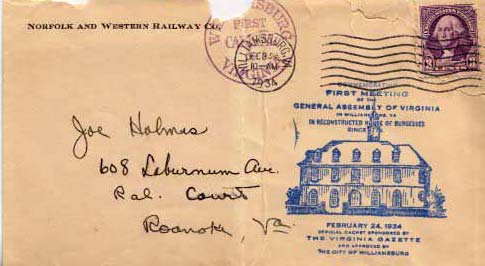 NORFOLK AND WESTERN RAILWAY CO.
WILLIAMSBURG
FIRST
VIRGINIA
WILLIAMSBURG, VA.
10-AM
1934
3
COMMEMORATING
FIRST MEETING
OF THE
GENERAL ASSEMBLY OF VIRGINIA
IN WILLIAMSBURG, VA
IN RECONSTRUCTED HOUSE OF BURGESSES
SINCE
Joe Holmes
608 Laburnum Ave.
Ral. Court
Roanoke, Va.
FEBRUARY 24, 1934
OFFICIAL CACHET SPONSORED BY
THE VIRGINIA GAZETTE
AND APPROVED BY
THE CITY OF WILLIAMSBURG